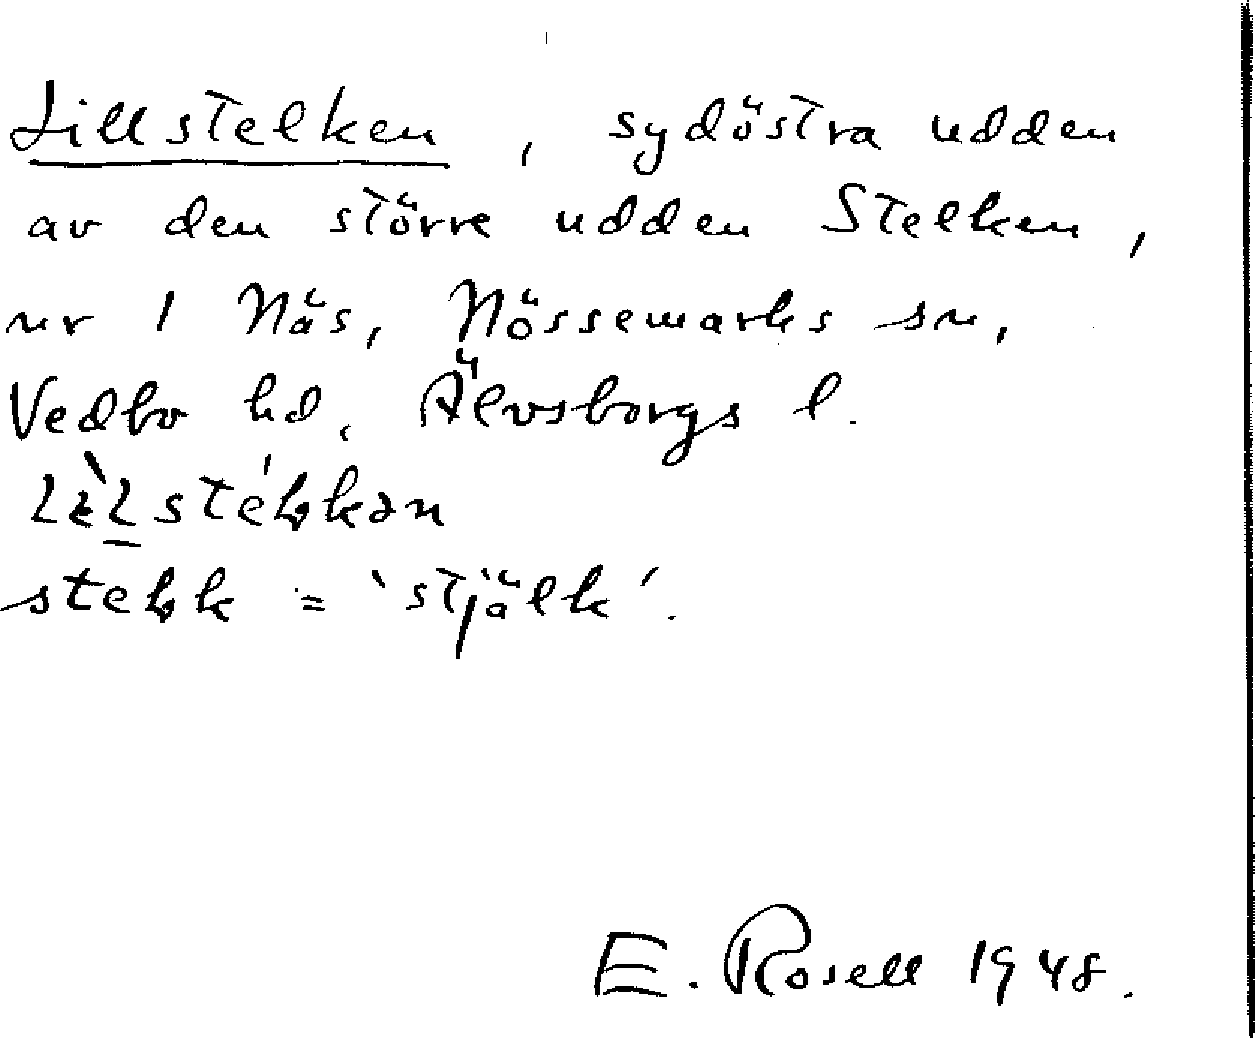 Lillstelken, sydöstra udden
av den större udden Stelken,
nr 1 Näs, Nössemarks sn,
Vedbo hd, Älvsborgs l.
stełk = ‘stjälk’.
E. Rosell 1948.